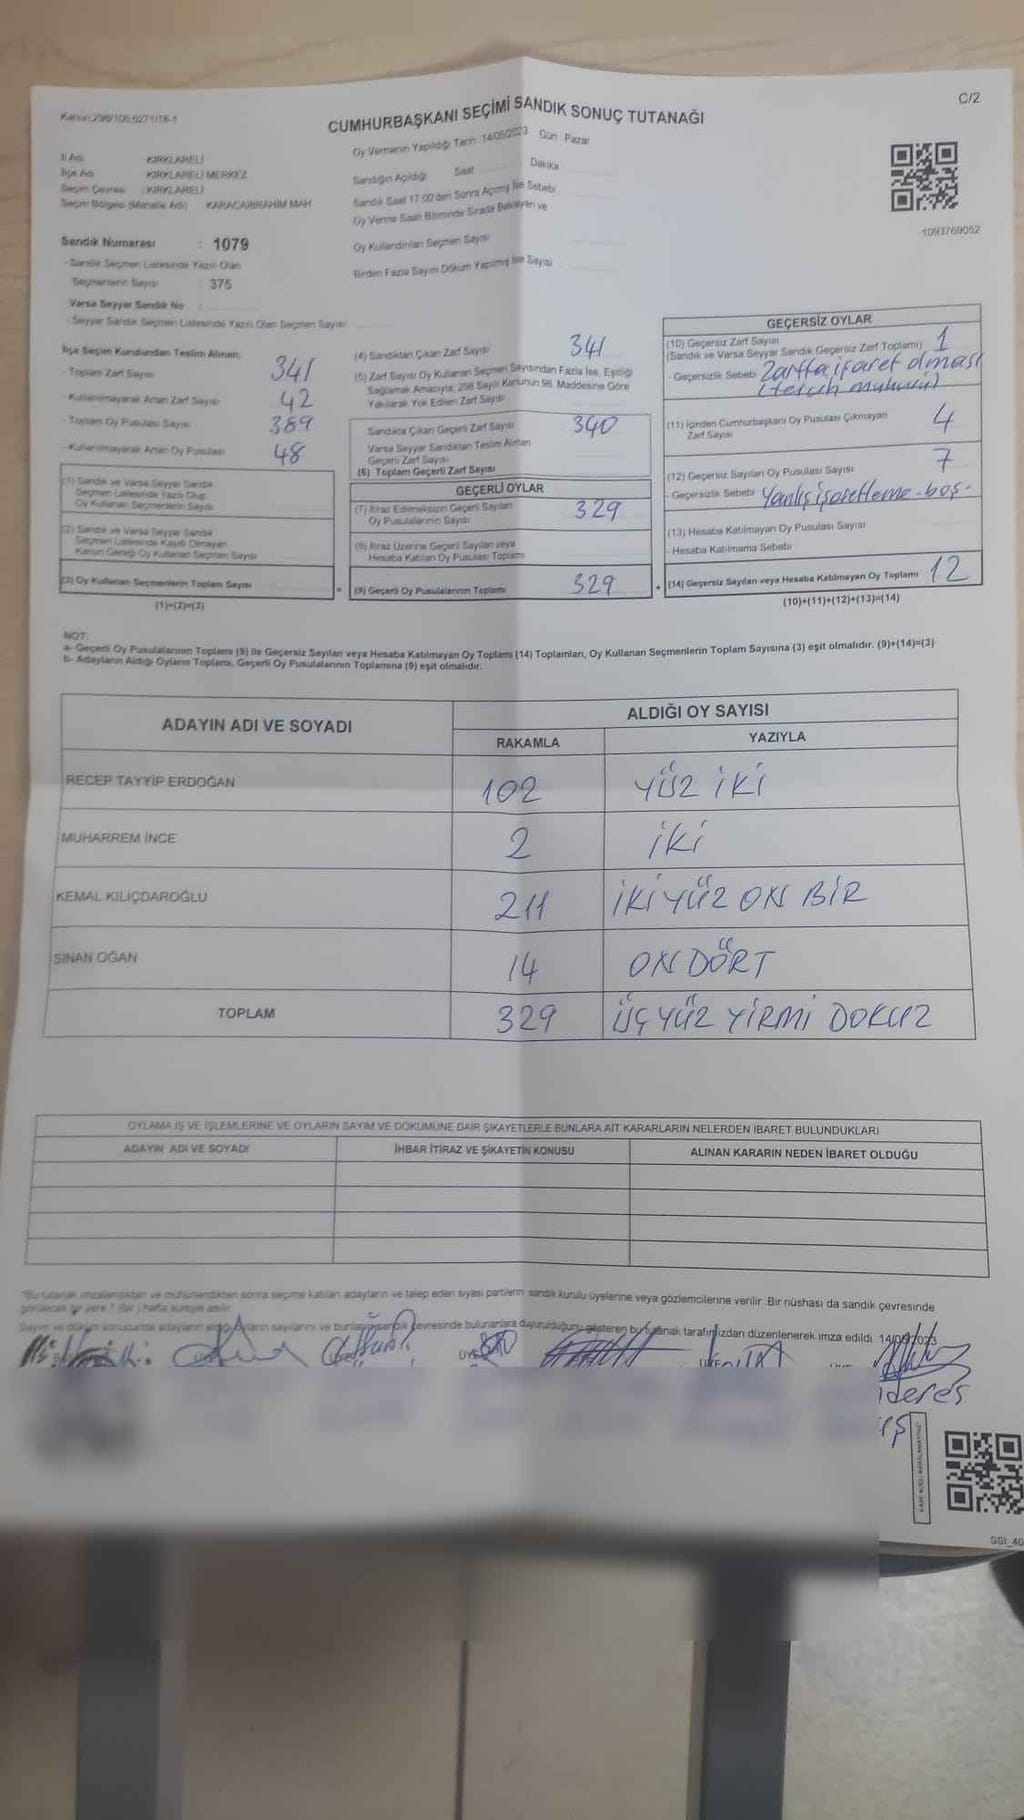 Kanun:298/106;6271/18-1
C/2
CUMHURBAŞKANI SEÇİMİ SANDIK SONUÇ TUTANAĞI
Oy Vermenin Yapıldığı Tarih: 14/05/2023 Gün Pazar
İl Adı KIRKLARELİ
İlçe Adı KIRKLARELİ MERKEZ
Seçim Çevresi : KIRKLARELİ
Seçim Bölgesi (Mahalle Adı) KARACAİBRAHİM MAH
Sandık Numarası : 1079
- Sandık Seçmen Listesinde Yazılı Olan
Seçmenlerin Sayısı : 375
Varsa Seyyar Sandık No
- Seyyar Sandık Seçmen Listesinde Yazılı Olan Seçmen Sayısı
Sandığın Açıldığı Saat Dakika
Sandık Saat 17:00'den Sonra Açılmış İse Sebebi
Oy Verme Saati Bitiminde Sırada Bekleyen ve
Oy Kullandırılan Seçmen Sayısı
Birden Fazla Sayım Döküm Yapılmış İse Sayısı
1093769052
İlçe Seçim Kurulundan Teslim Alınan:
- Toplam Zarf Sayısı 341
- Kullanılmayarak Artan Zarf Sayısı 42
- Toplam Oy Pusulası Sayısı 389
- Kullanılmayarak Artan Oy Pusulası 48
(1) Sandık ve Varsa Seyyar Sandık
Seçmen Listesinde Yazılı Olup
Oy Kullanan Seçmenlerin Sayısı
(2) Sandık ve Varsa Seyyar Sandık
Seçmen Listesinde Kayıtlı Olmayan
Kanun Gereği Oy Kullanan Seçmen Sayısı
(3) Oy Kullanan Seçmenlerin Toplam Sayısı
(1)+(2)=(3)
(4) Sandıktan Çıkan Zarf Sayısı 341
(5) Zarf Sayısı Oy Kullanan Seçmen Sayısından Fazla İse, Eşitliği
Sağlamak Amacıyla, 298 Sayılı Kanunun 98. Maddesine Göre
Yakılarak Yok Edilen Zarf Sayısı
Sandıkta Çıkan Geçerli Zarf Sayısı 340
Varsa Seyyar Sandıktan Teslim Alınan
Geçerli Zarf Sayısı
(6) Toplam Geçerli Zarf Sayısı
GEÇERLİ OYLAR
(7) İtiraz Edilmeksizin Geçerli Sayılan
Oy Pusulalarının Sayısı 329
(8) İtiraz Üzerine Geçerli Sayılan veya
Hesaba Katılan Oy Pusulası Toplamı
= (9) Geçerli Oy Pusulalarının Toplamı 329
GEÇERSİZ OYLAR
(10) Geçersiz Zarf Sayısı
(Sandık ve Varsa Seyyar Sandık Geçersiz Zarf Toplamı) 1
- Geçersizlik Sebebi Zarfta işaret olması
(tercih mühürü)
(11) İçinden Cumhurbaşkanı Oy Pusulası Çıkmayan
Zarf Sayısı 4
(12) Geçersiz Sayılan Oy Pusulası Sayısı 7
- Geçersizlik Sebebi Yanlış işaretleme - boş -
(13) Hesaba Katılmayan Oy Pusulası Sayısı
- Hesaba Katılmama Sebebi
+ (14) Geçersiz Sayılan veya Hesaba Katılmayan Oy Toplamı 12
(10)+(11)+(12)+(13)=(14)
NOT:
a- Geçerli Oy Pusulalarının Toplamı (9) ile Geçersiz Sayılan veya Hesaba Katılmayan Oy Toplamı (14) Toplamları, Oy Kullanan Seçmenlerin Toplam Sayısına (3) eşit olmalıdır. (9)+(14)=(3)
b- Adayların Aldığı Oyların Toplamı, Geçerli Oy Pusulalarının Toplamına (9) eşit olmalıdır.
ADAYIN ADI VE SOYADI
ALDIĞI OY SAYISI
RAKAMLA YAZIYLA
RECEP TAYYİP ERDOĞAN 102 YÜZ İKİ
MUHARREM İNCE 2 İKİ
KEMAL KILIÇDAROĞLU 211 İKİ YÜZ ON BİR
SİNAN OĞAN 14 ON DÖRT
TOPLAM 329 ÜÇ YÜZ YİRMİ DOKUZ
OYLAMA İŞ VE İŞLEMLERİNE VE OYLARIN SAYIM VE DÖKÜMÜNE DAİR ŞİKAYETLERLE BUNLARA AİT KARARLARIN NELERDEN İBARET BULUNDUKLARI
ADAYIN ADI VE SOYADI İHBAR İTİRAZ VE ŞİKAYETİN KONUSU ALINAN KARARIN NEDEN İBARET OLDUĞU
"Bu tutanak imzalandıktan ve mühürlendikten sonra seçime katılan adayların ve talep eden siyasi partilerin sandık kurulu üyelerine veya gözlemcilerine verilir. Bir nüshası da sandık çevresinde
görülecek bir yere 1 (bir) hafta süreyle asılır.
Sayım ve döküm sonucunda adayların aldığı oyların sayılarını ve bunların sandık çevresinde bulunanlara duyurulduğunu gösteren bu tutanak tarafımızdan düzenlenerek imza edildi. 14/05/2023
SSI_40